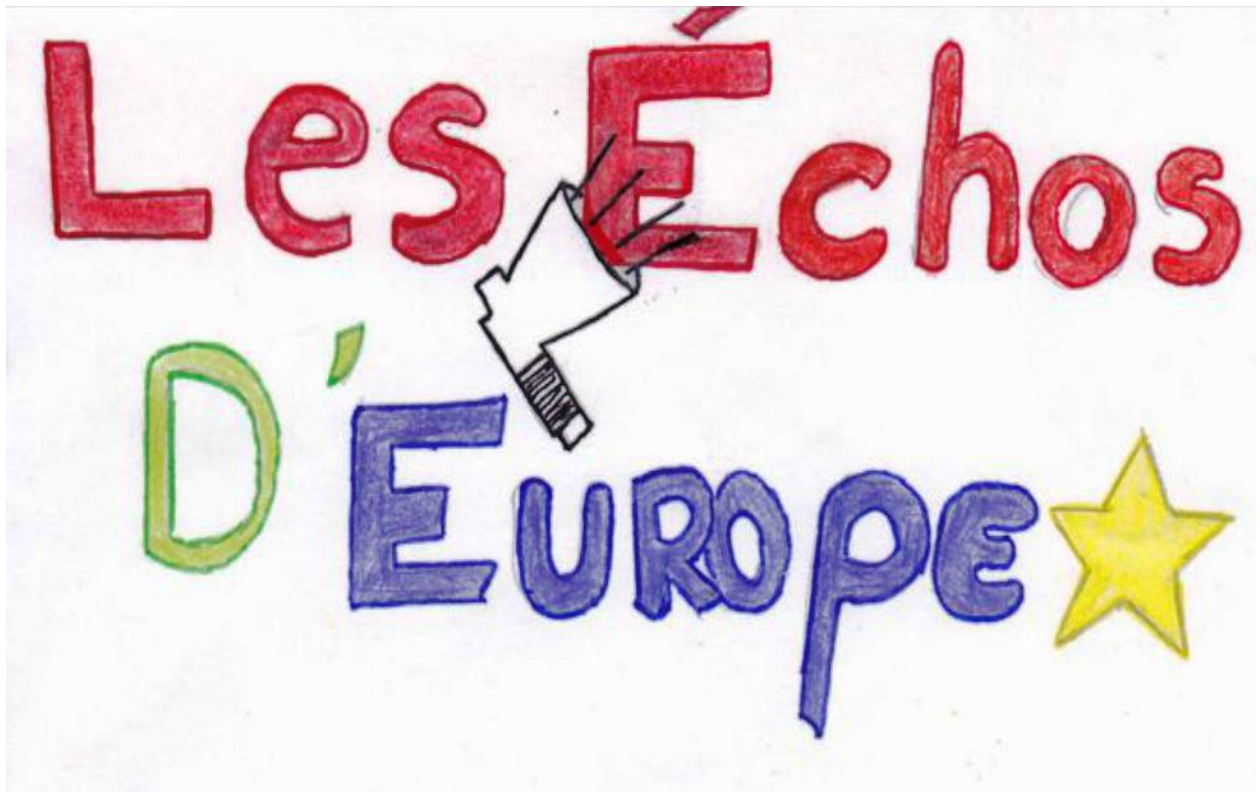 Les Échos
D'EUROPE